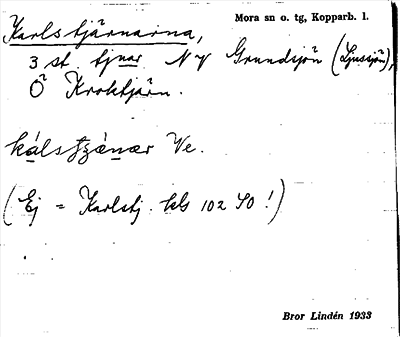 Karlstjärnarna,
Mora sn o. tg, Kopparb. l.
3 st. tjnar NV Grundsjön (Ljussjön),
Ö Kroktjärn.
Ve.
(Ej = Karlstj. kls 102 40!)
Bror Lindén 1933